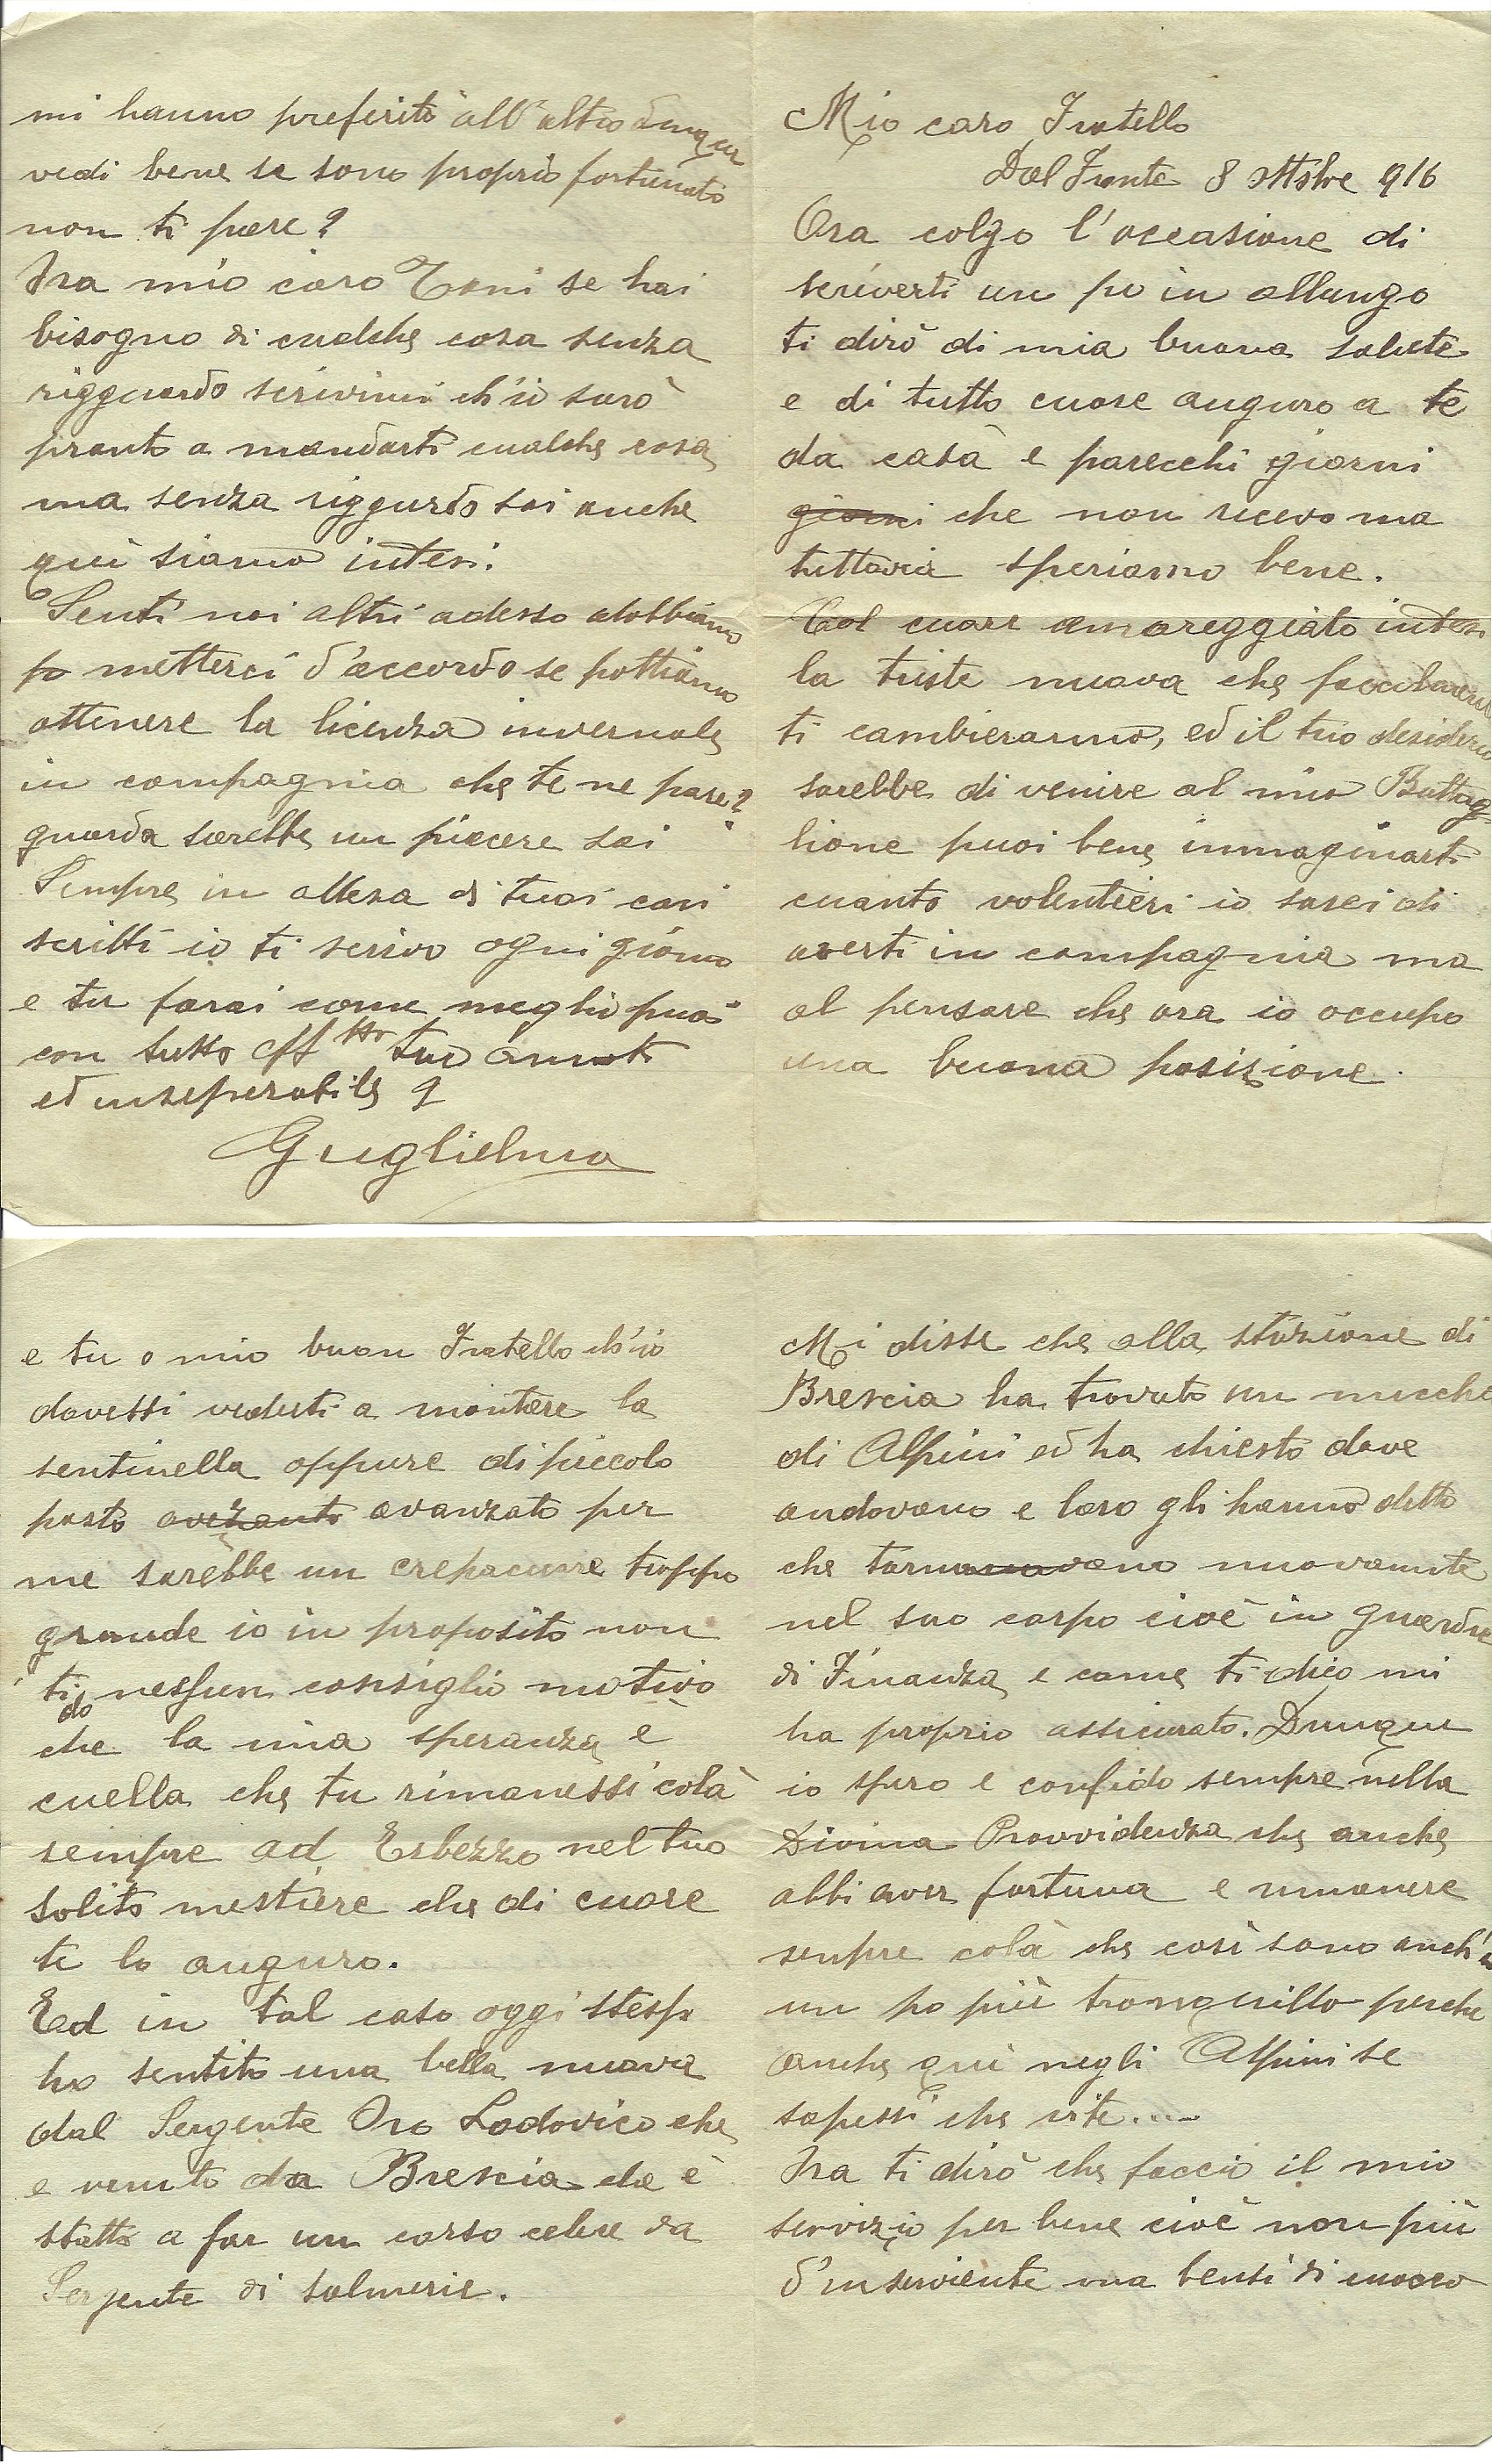 Mio caro Fratello
Dal Fronte 8 ottobre 916
Ora colgo l'occasione di
scriverti un po in allungo
ti dirò di mia buona salute
e di tutto cuore auguro a te
da casà e parecchi giorni
giorni che non ricevo ma
tuttavia speriamo bene.
Col cuore amareggiato intesi
la triste nuova che
ti cambieranno, ed il tuo desiderio
sarebbe di venire al mio Battag-
lione puoi bene immaginarti
cuanto volentieri io sarei di
averti in compagnia ma
al pensare che ora io occupo
una buona posizione.
e tu o mio buon Fratello ch'io
dovessi vederti a montare la
sentinella oppure di piccolo
posto avezanto avanzato per
me sarebbe un crepacuore troppo
grande io in proposito non
ti do nessun consiglio motivo
che la mia speranza è
cuella che tu rimanessi colà
sempre ad Esbezzo nel tuo
solito mestiere che di cuore
te lo auguro.
Ed in tal caso oggi stesso
ho sentito una bella nuova
dal Sergente Oro Lodovico che
e venuto da Brescia che è
statto a far un corso celere da
Sergente di salmerie.
Mi disse che alla stazione di
Brescia ha trovato un mucchio
di Alpini ed ha chiesto dove
andavano e loro gli hanno detto
che tornavano nuovamente
nel suo corpo cioè in guardia
di Finanza e come ti dico mi
ha proprio assicurato. Dunque
io spero e confido sempre nella
Divina Provvidenza che anche
abbi aver fortuna e rimanere
senpre colà che così sono anch'io
un po più tranquillo perche
anche qui negli Alpini se
sapessi che vite....
Ora ti dirò che faccio il mio
servizio per bene cioè non più
d'inserviente ma bensi di cuoco
mi hanno preferito all'altro dunque
vedi bene se sono proprio fortunato
non ti pare?
Ora mio caro Toni se hai
bisogno di cualche cosa senza
rigguardo scrivimi ch'io sarò
pronto a mandarti cualche cosa
ma senza riggurdo sai anche
qui siamo intesi.
Senti noi altri adesso dobbiamo
po metterci d'accordo se pottiamo
ottenere la licenza invernale
in compagnia che te ne pare?
guarda sarebbe un piacere sai
Sempre in attesa di tuoi cari
scritti io ti scrivo ogni giorno
e tu farai come meglio puoi
con tutto aff tto tuo
ed inseperabile
Guglielmo